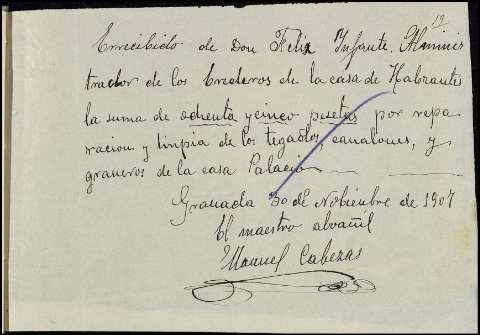 12
Errecibido de Don Feliz Infante Alminis
trador de los Erederos de la casa de Nabarantes
la suma de ochenta y cinco pesetas por repa
racion y linpia de los tegados, canalones, y
graneros de la casa Palacion
Granada 30 de Nobienbre de 1907
El maestro alvañil
Manuel Cabezas